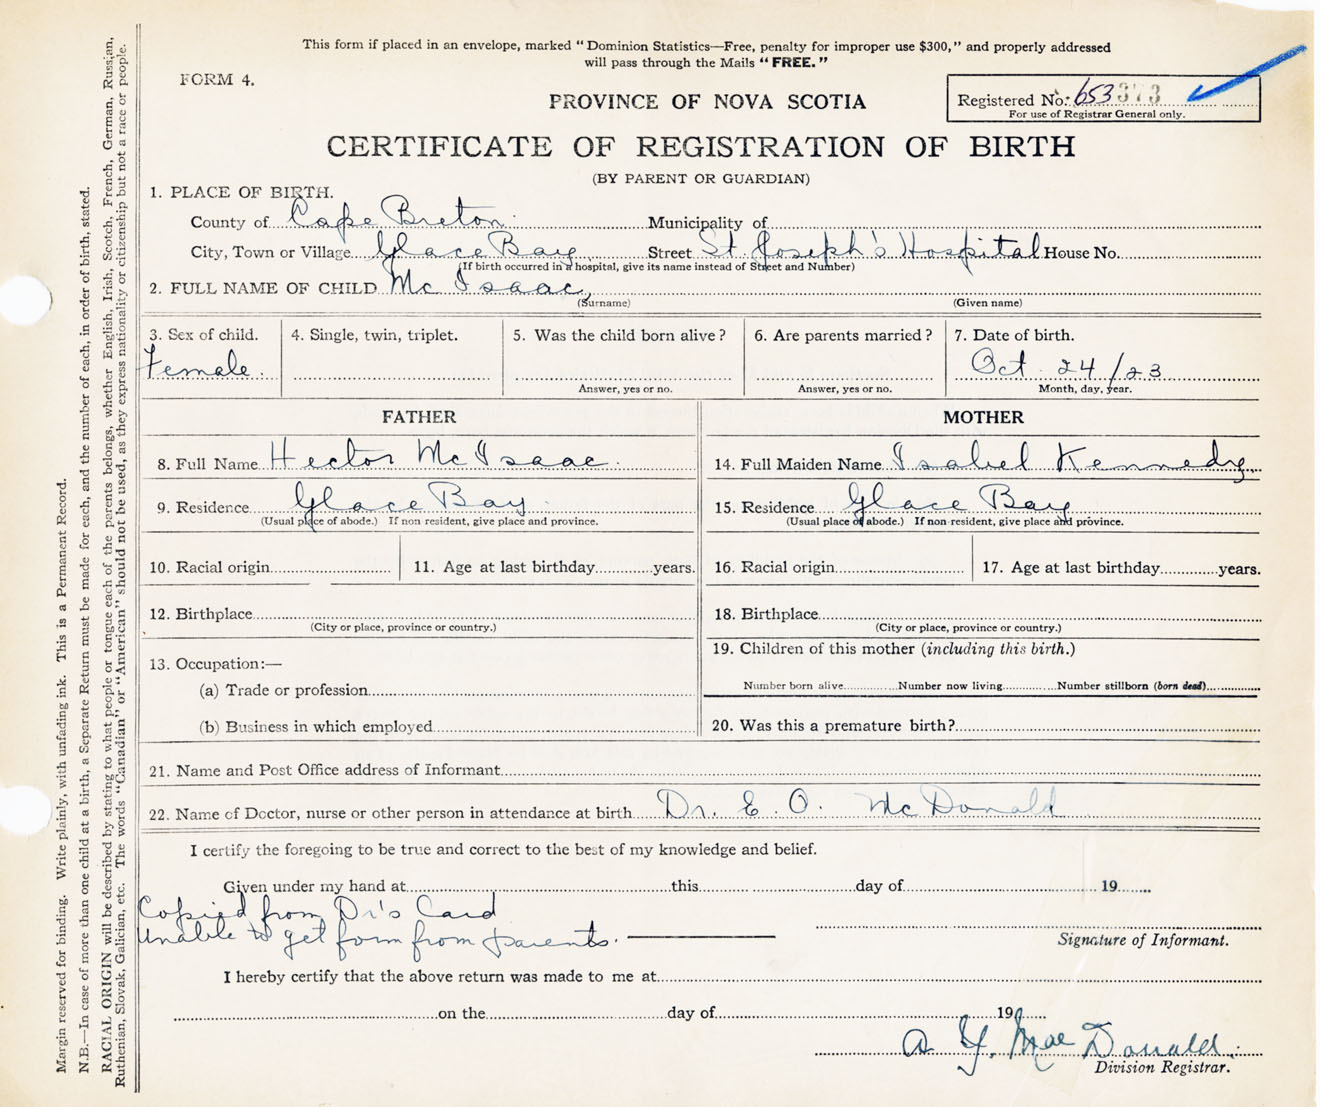 This form if placed in an envelope, marked “Dominion Statistics—Free, penalty for improper use $300,” and properly addressed
will pass through the Mails “FREE.”
FORM 4.
PROVINCE OF NOVA SCOTIA
Registered No: 653373
For use of Registrar General only.
CERTIFICATE OF REGISTRATION OF BIRTH
(BY PARENT OR GUARDIAN)
1. PLACE OF BIRTH.
County of Cape Breton Municipality of
City, Town or Village Glace Bay Street St. Joseph's Hospital House No.
(If birth occurred in a hospital, give its name instead of Street and Number)
2. FULL NAME OF CHILD Mc Isaac,
(Surname) (Given name)
3. Sex of child. 4. Single, twin, triplet. 5. Was the child born alive? 6. Are parents married? 7. Date of birth.
Female. Oct. 24/23
Answer, yes or no. Answer, yes or no. Month, day, year.
FATHER MOTHER
8. Full Name Hector Mc Isaac. 14. Full Maiden Name Isabel Kennedy
9. Residence Glace Bay. 15. Residence Glace Bay
(Usual place of abode.) If non resident, give place and province. (Usual place of abode.) If non-resident, give place and province.
10. Racial origin 11. Age at last birthday years. 16. Racial origin 17. Age at last birthday years.
12. Birthplace 18. Birthplace
(City or place, province or country.) (City or place, province or country.)
13. Occupation:— 19. Children of this mother (including this birth.)
(a) Trade or profession Number born alive Number now living Number stillborn (born dead)
(b) Business in which employed 20. Was this a premature birth?
21. Name and Post Office address of Informant
22. Name of Doctor, nurse or other person in attendance at birth Dr. E. O. McDonald
I certify the foregoing to be true and correct to the best of my knowledge and belief.
Given under my hand at this day of 19
Copied from Dr's Card
Unable to get form from parents.
Signature of Informant.
I hereby certify that the above return was made to me at
on the day of 19
A. Y. MacDonald.
Division Registrar.
Margin reserved for binding. Write plainly, with unfading ink. This is a Permanent Record.
N.B.—In case of more than one child at a birth, a Separate Return must be made for each, and the number of each, in order of birth, stated.
RACIAL ORIGIN will be described by stating to what people or tongue each of the parents belongs, whether English, Irish, Scotch, French, German, Russian,
Ruthenian, Slovak, Galician, etc. The words “Canadian” or “American” should not be used, as they express nationality or citizenship but not a race or people.